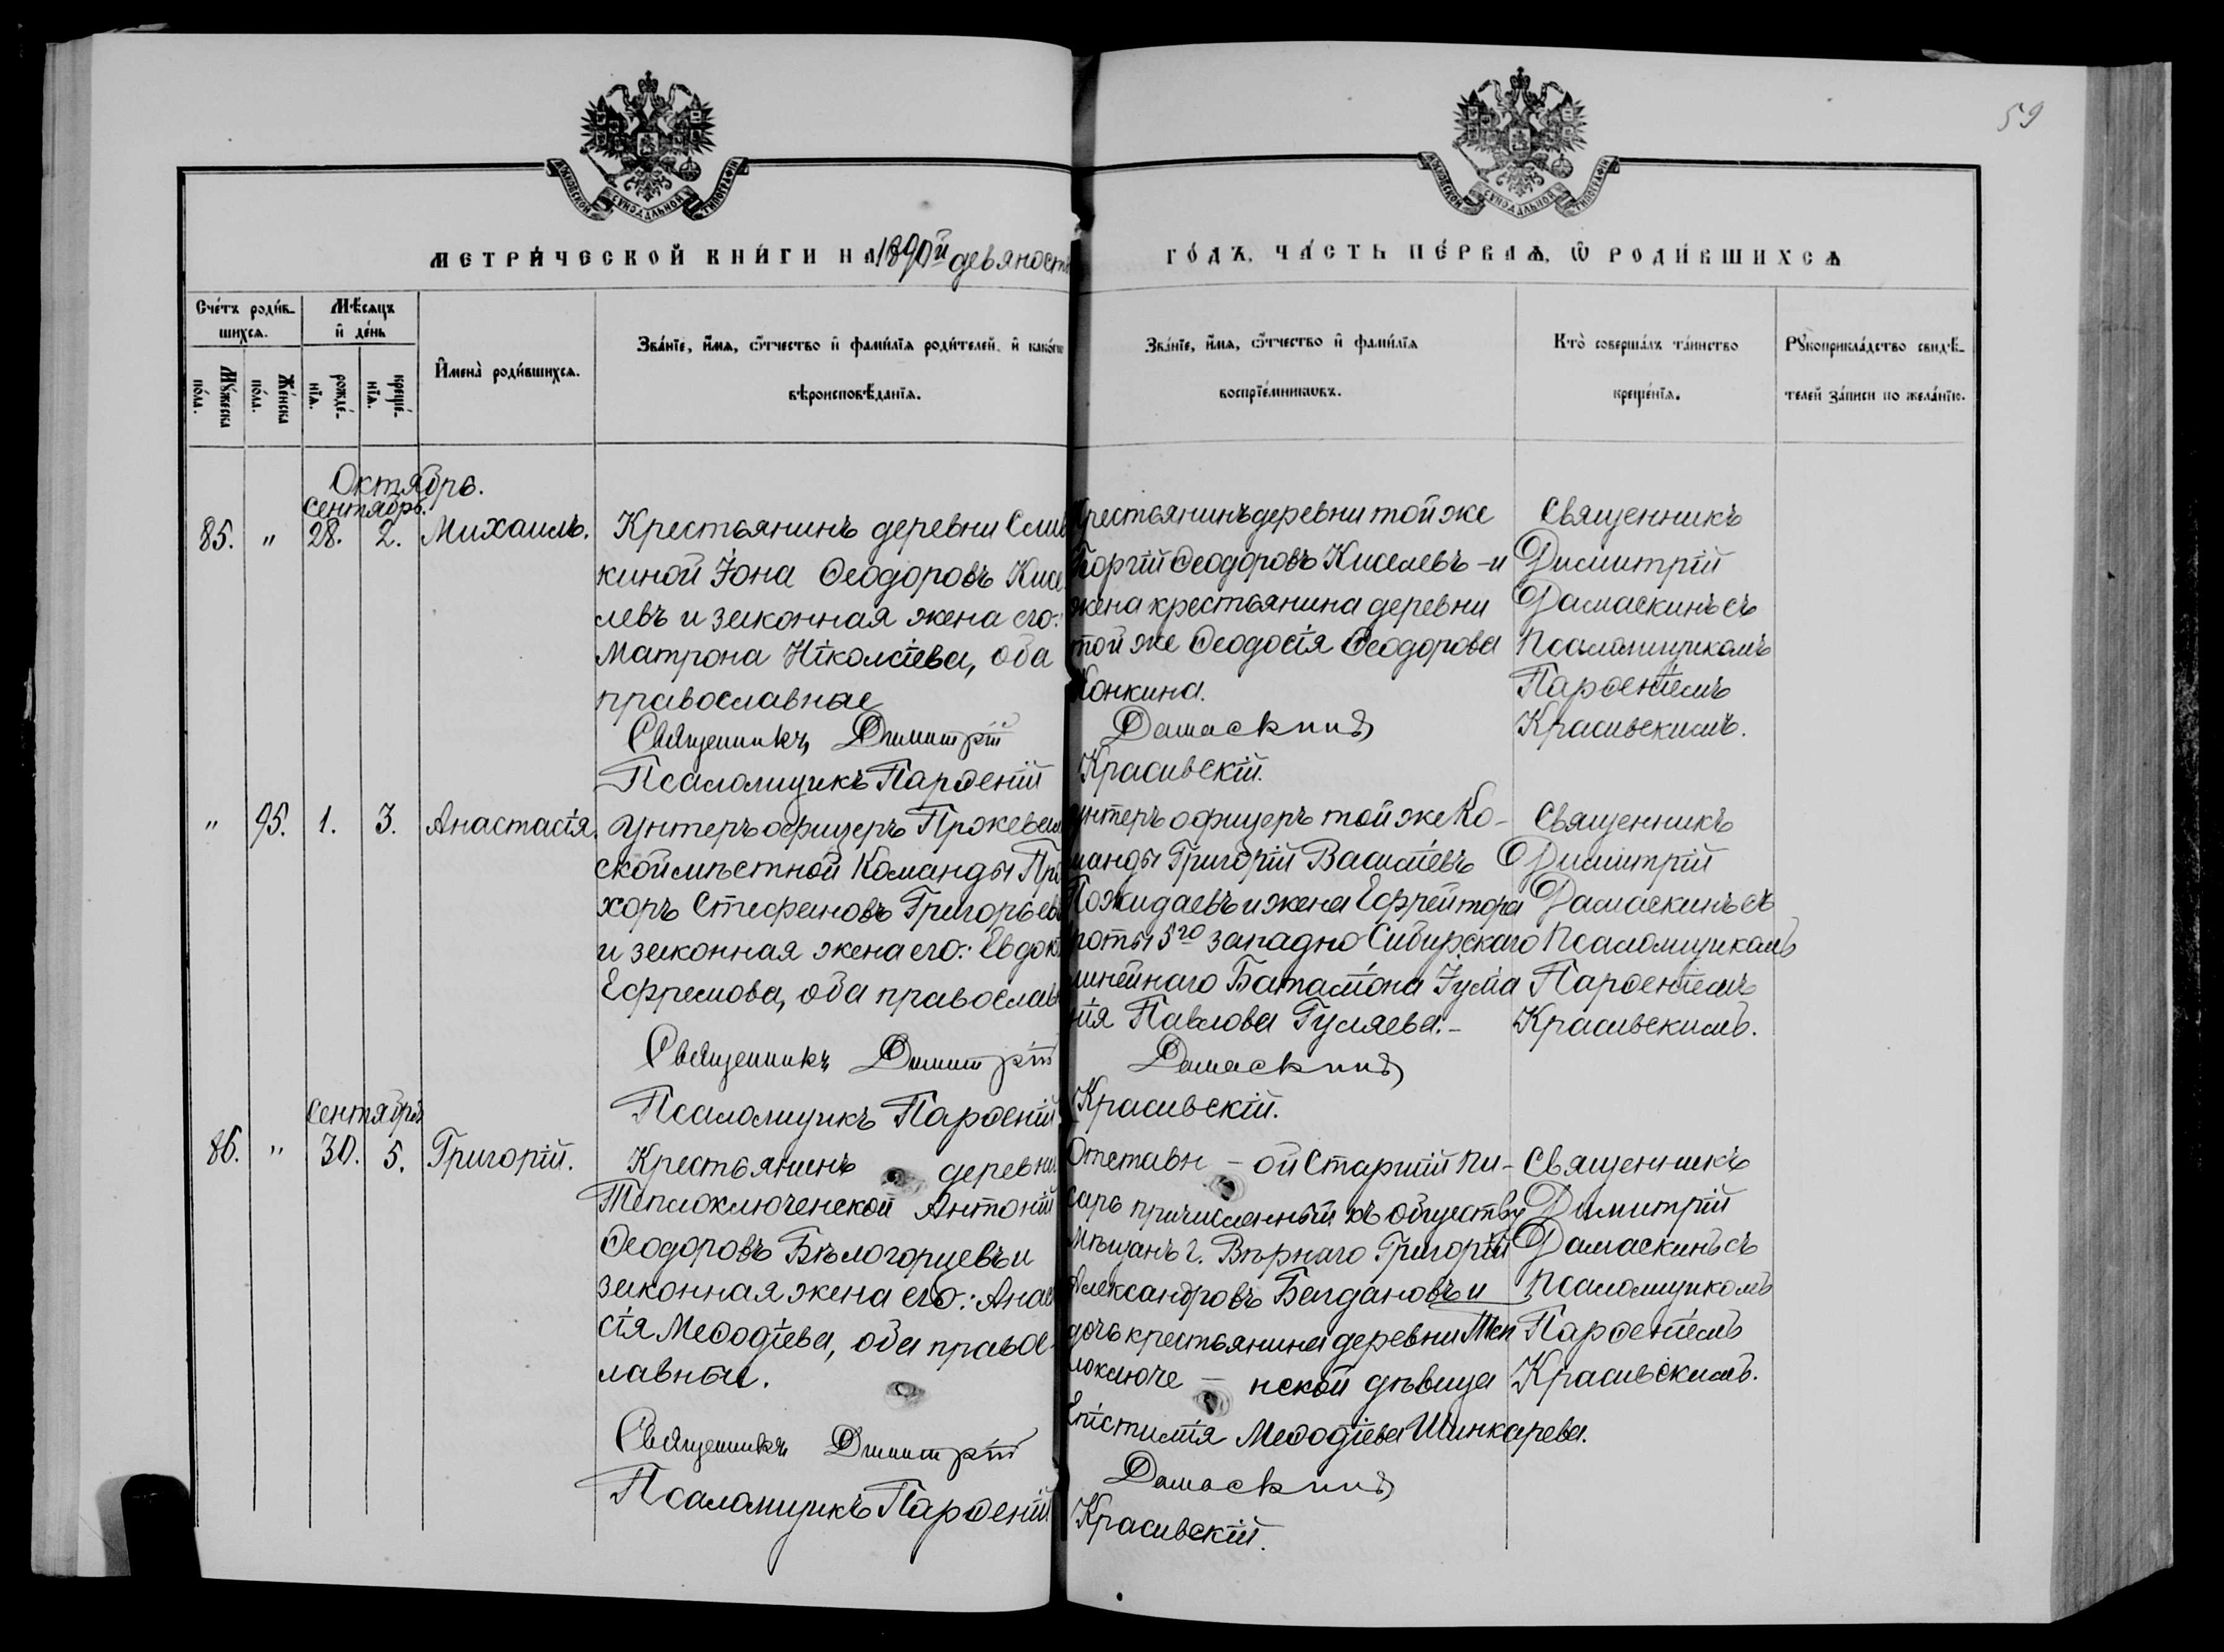 59
МОСКОВСКОЙ СѴНОДАЛЬНОЙ ТИПОГРАФІИ
МОСКОВСКОЙ СѴНОДАЛЬНОЙ ТИПОГРАФІИ
МЕТРИ́ЧЕСКОЙ КНИ́ГИ НА 1890й девяносты
ГО́ДЪ, ЧА́СТЬ ПЕ́РВАѦ, Ѡ РОДИ́ВШИХСѦ
Сче́тъ роди́в-
шихсѧ.
Мѣ́сѧцъ
и҆ де́нь
Мꙋ́жеска
по́ла.
Же́нска
по́ла.
рожде́-
нїѧ.
креще́-
нїѧ.
И҆мена̀ роди́вшихсѧ.
Зва́нїе, и҆́мѧ, ѻ҆́тчество и҆ фами́лїѧ роди́телей, и҆ како́гѡ
вѣроисповѣ́данїѧ.
Зва́нїе, и҆́мѧ, ѻ҆́тчество и҆ фами́лїѧ
воспрїе́мникѡвъ.
Кто̀ соверша́лъ та́инство
креще́нїѧ.
Рꙋкоприкла́дство свидѣ́-
телей за́писи по жела́нїю.
Октябрь.
Сентябрь.
85. " 28. 2. Михаилъ.
Крестьянинъ деревни Слив
киной Іона Ѳеодоровъ Кисе
левъ и законная жена его:
Матрона Ніколаіева, оба
православные
Священникъ Димитрій
Псаломщикъ Парѳеній
Крестьянинъ деревни той же
Георгій Ѳеодоровъ Киселевъ - и
жена крестьянина деревни
той же Ѳеодосія Ѳеодорова
Конкина.
Дамаскинъ
Красивскій.
Священникъ
Димитрій
Дамаскинъ съ
Псаломщикомъ
Парѳеніемъ
Красивскимъ.
" 95. 1. 3. Анастасія.
Унтеръ офицеръ Пржеваль
ской мѣстной Команды Про
хоръ Стефановъ Григорьевъ
и законная жена его: Евдокі
Ефремова, оба православн
Священникъ Димитрій
Псаломщикъ Парѳеній
унтеръ офицеръ той же Ко-
манды Григорій Василіевъ
Пожидаевъ и жена Ефрейтора
роты 5го западно Сибирскаго
линейнаго Баталіона Іуліа
нія Павлова Гуляева. -
Дамаскинъ
Красивскій.
Священникъ
Димитрій
Дамаскинъ съ
Псаломщикомъ
Парѳеніемъ
Красивскимъ.
Сентября
86. " 30. 5. Григорій.
Крестьянинъ деревни
Теплоключенской Антоній
Ѳеодоровъ Бѣлогорцевъ и
законная жена его: Анас
сія Меѳодіева, оба правос-
лавные.
Священникъ Димитрій
Псаломщикъ Парѳеній
Отставн - ой Старшій пи-
сарь причисленный къ обществу
Мѣщанъ г. Вѣрнаго Григорій
Александровъ Багдановъ и
дочь крестьянина деревни Теп
лоключе - нской дѣвица
Епистимія Меѳодіева Шинкарева.
Дамаскинъ
Красивскій.
Священникъ
Димитрій
Дамаскинъ съ
Псаломщикомъ
Парѳеніемъ
Красивскимъ.